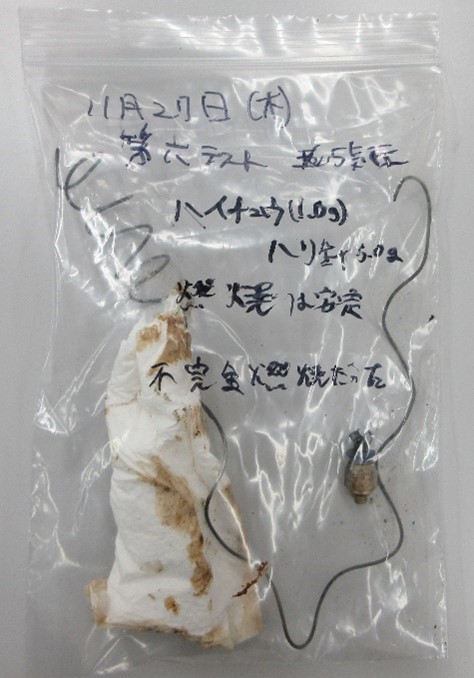 11月27日(木)
第六テスト
ハイチュウ(1.0g)
ハリ金 5.0g
燃焼は安定
不完全燃焼だった